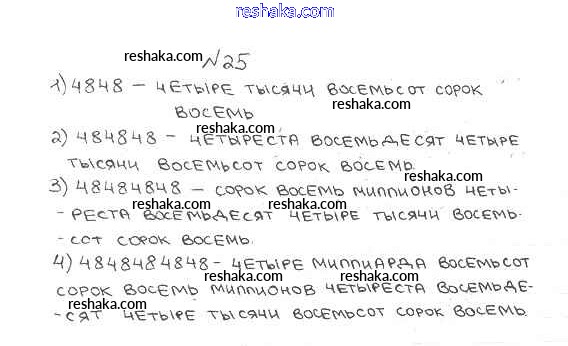 reshaka.com
reshaka.com №25
1) 4848 – четыре тысячи восемьсот сорок
reshaka.com
восемь
reshaka.com
2) 484848 – четыреста восемьдесят четыре
тысячи восемьсот сорок восемь.
reshaka.com
3) 48484848 – сорок восемь миллионов четы-
reshaka.com reshaka.com
-реста восемьдесят четыре тысячи восемь-
-сот сорок восемь.
4) 4848484848 – четыре миллиарда восемьсот
reshaka.com reshaka.com
сорок восемь миллионов четыреста восемьде-
reshaka.com reshaka.com
-сят четыре тысячи восемьсот сорок восемь.